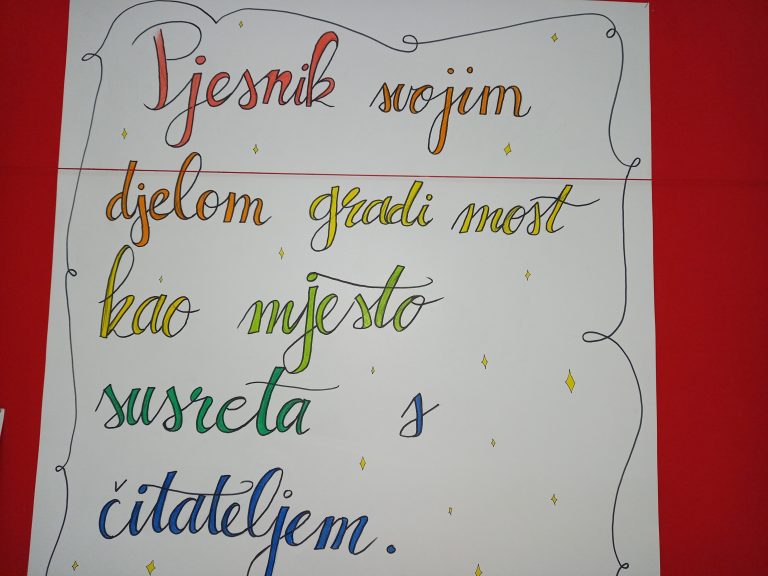 Pjesnik svojim
djelom gradi most
kao mjesto
susreta s
čitateljem.